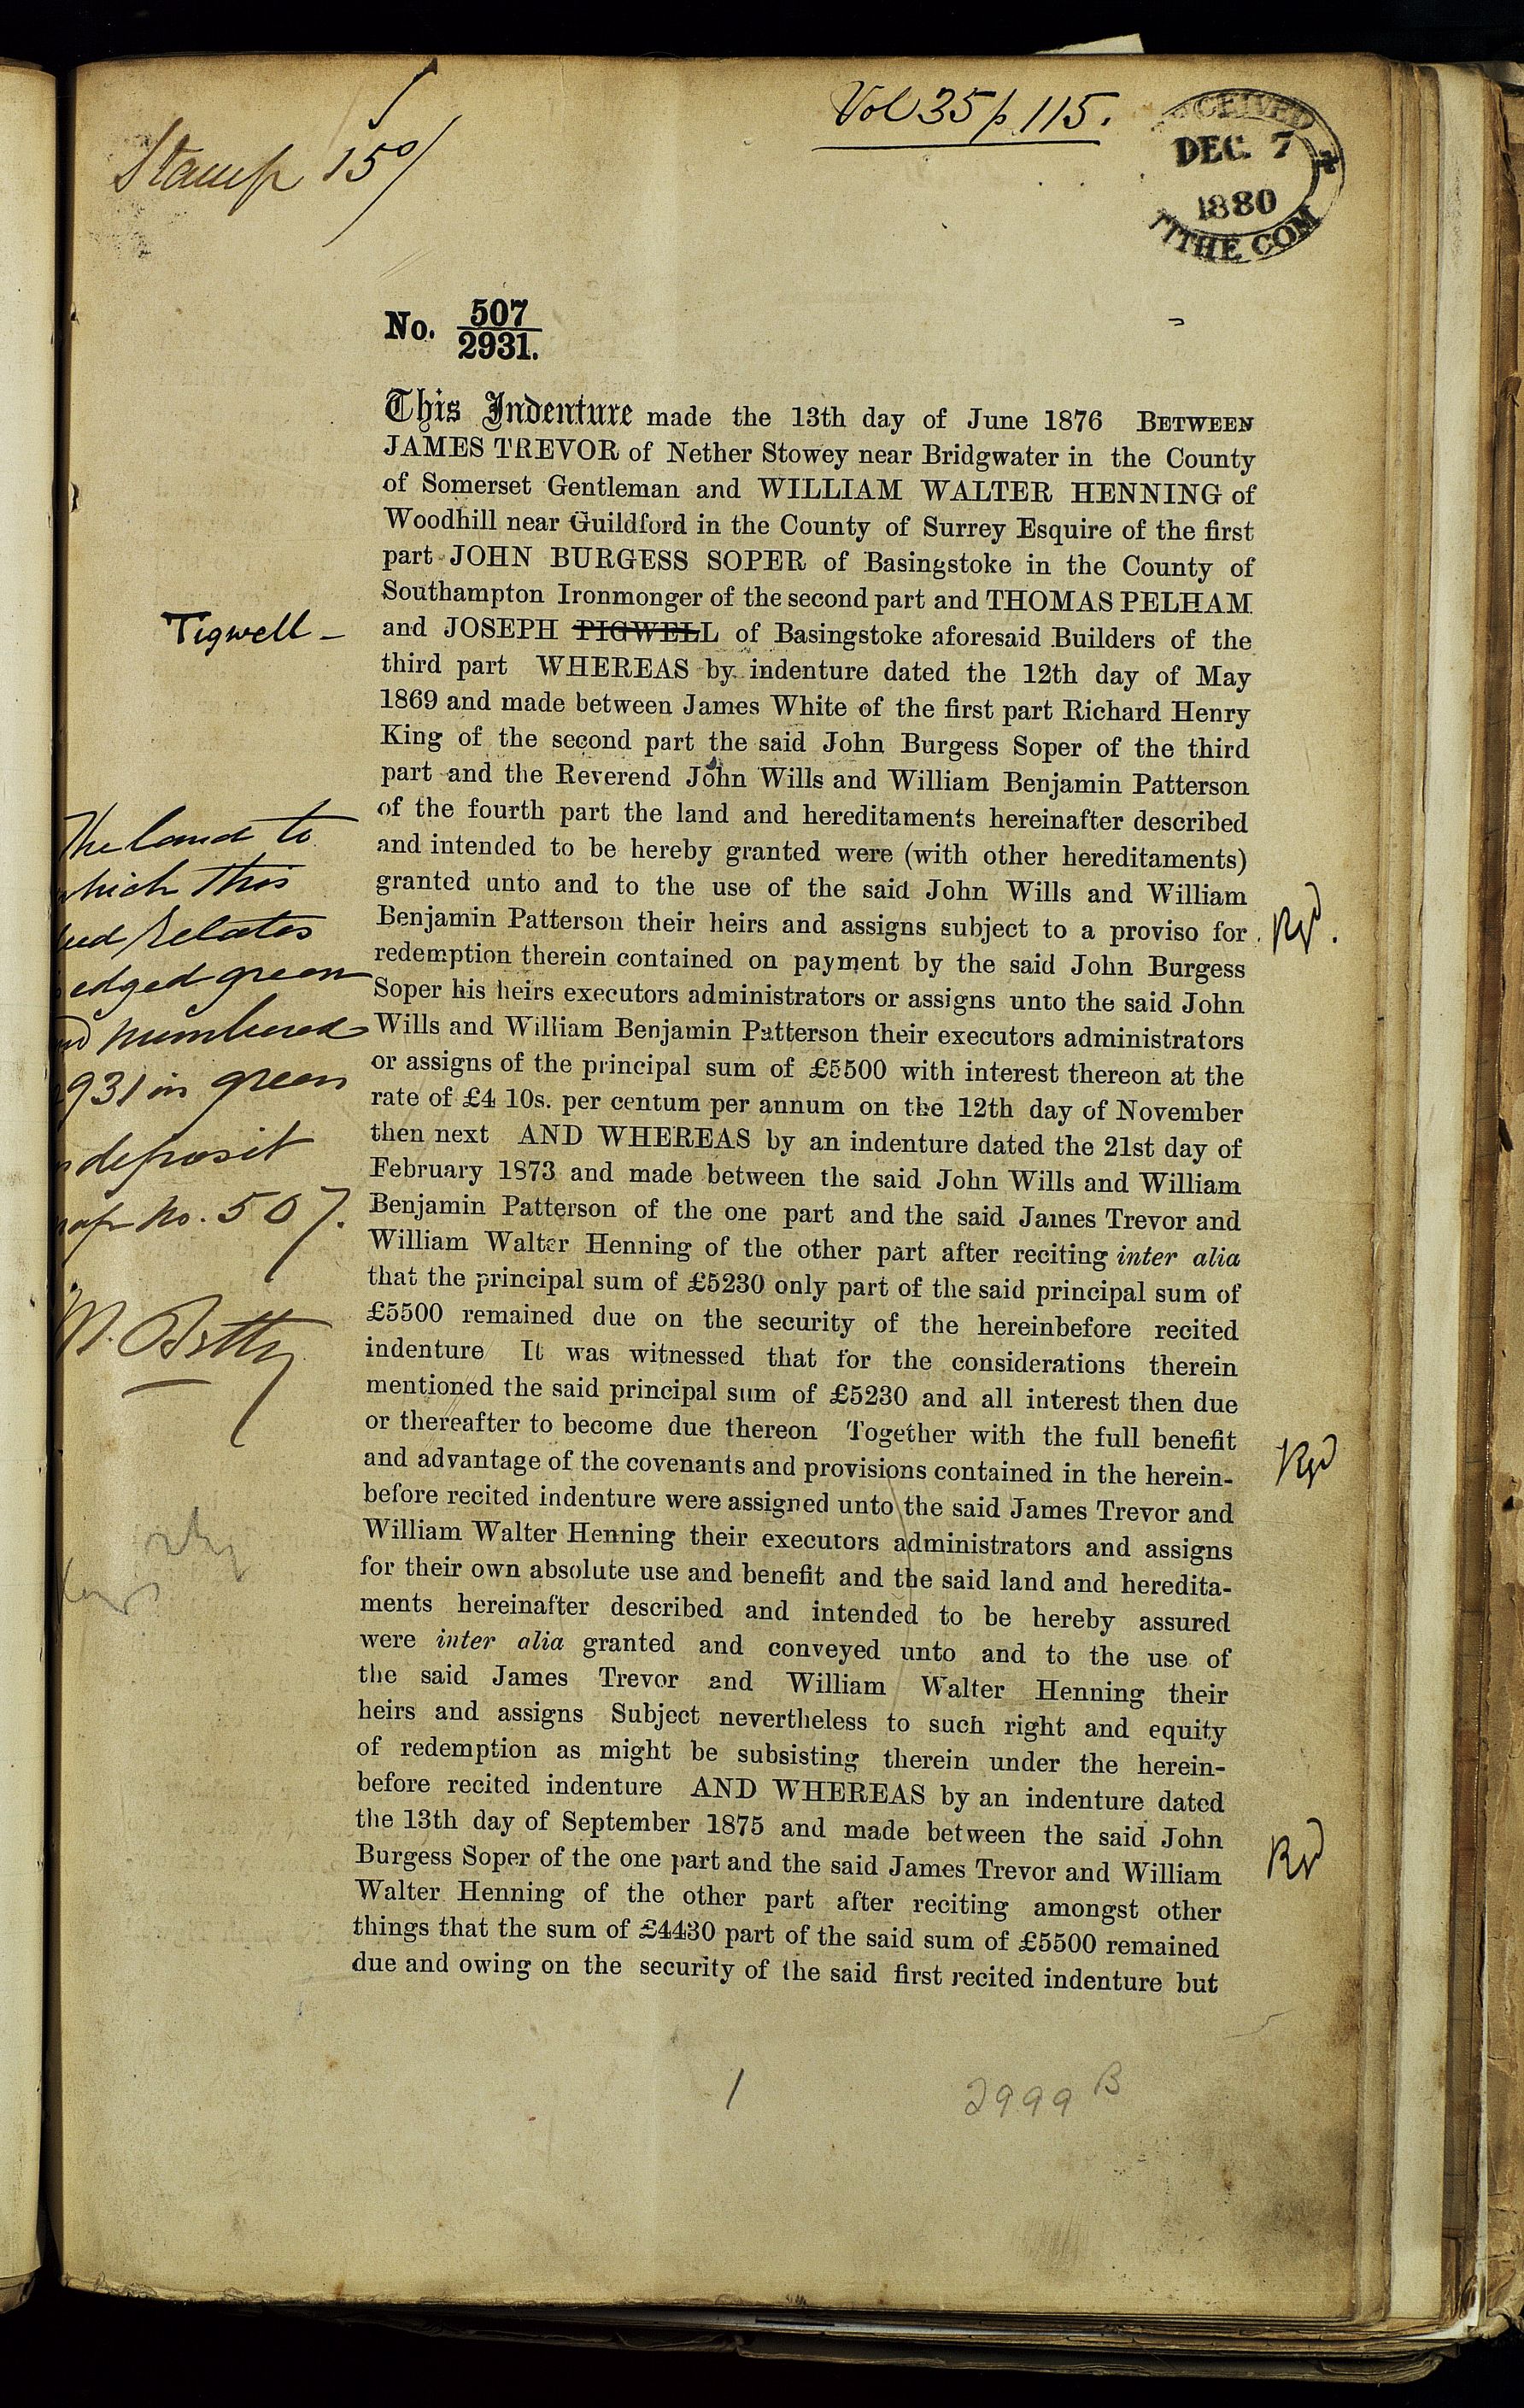 Vol 35 p. 115.
Stamp 15/
RECEIVED
DEC. 7
1880
TITHE COM
No. 507
2931.
This Indenture made the 13th day of June 1876 BETWEEN
JAMES TREVOR of Nether Stowey near Bridgwater in the County
of Somerset Gentleman and WILLIAM WALTER HENNING of
Woodhill near Guildford in the County of Surrey Esquire of the first
part JOHN BURGESS SOPER of Basingstoke in the County of
Southampton Ironmonger of the second part and THOMAS PELHAM
Tigwell -
and JOSEPH PIGWELL of Basingstoke aforesaid Builders of the
third part WHEREAS by indenture dated the 12th day of May
1869 and made between James White of the first part Richard Henry
King of the second part the said John Burgess Soper of the third
part and the Reverend John Wills and William Benjamin Patterson
of the fourth part the land and hereditaments hereinafter described
and intended to be hereby granted were (with other hereditaments)
granted unto and to the use of the said John Wills and William
Benjamin Patterson their heirs and assigns subject to a proviso for
redemption therein contained on payment by the said John Burgess
Soper his heirs executors administrators or assigns unto the said John
Wills and William Benjamin Patterson their executors administrators
or assigns of the principal sum of £5500 with interest thereon at the
rate of £4 10s. per centum per annum on the 12th day of November
then next AND WHEREAS by an indenture dated the 21st day of
February 1873 and made between the said John Wills and William
Benjamin Patterson of the one part and the said James Trevor and
William Walter Henning of the other part after reciting inter alia
that the principal sum of £5230 only part of the said principal sum of
£5500 remained due on the security of the hereinbefore recited
indenture It was witnessed that for the considerations therein
mentioned the said principal sum of £5230 and all interest then due
or thereafter to become due thereon Together with the full benefit
and advantage of the covenants and provisions contained in the herein-
before recited indenture were assigned unto the said James Trevor and
William Walter Henning their executors administrators and assigns
for their own absolute use and benefit and the said land and heredita-
ments hereinafter described and intended to be hereby assured
were inter alia granted and conveyed unto and to the use of
the said James Trevor and William Walter Henning their
heirs and assigns Subject nevertheless to such right and equity
of redemption as might be subsisting therein under the herein-
before recited indenture AND WHEREAS by an indenture dated
the 13th day of September 1875 and made between the said John
Burgess Soper of the one part and the said James Trevor and William
Walter Henning of the other part after reciting amongst other
things that the sum of £4430 part of the said sum of £5500 remained
due and owing on the security of the said first recited indenture but
The land to
which this
deed relates
edged green
numbered
931 in green
deposit
map No. 507.
1
2999 B